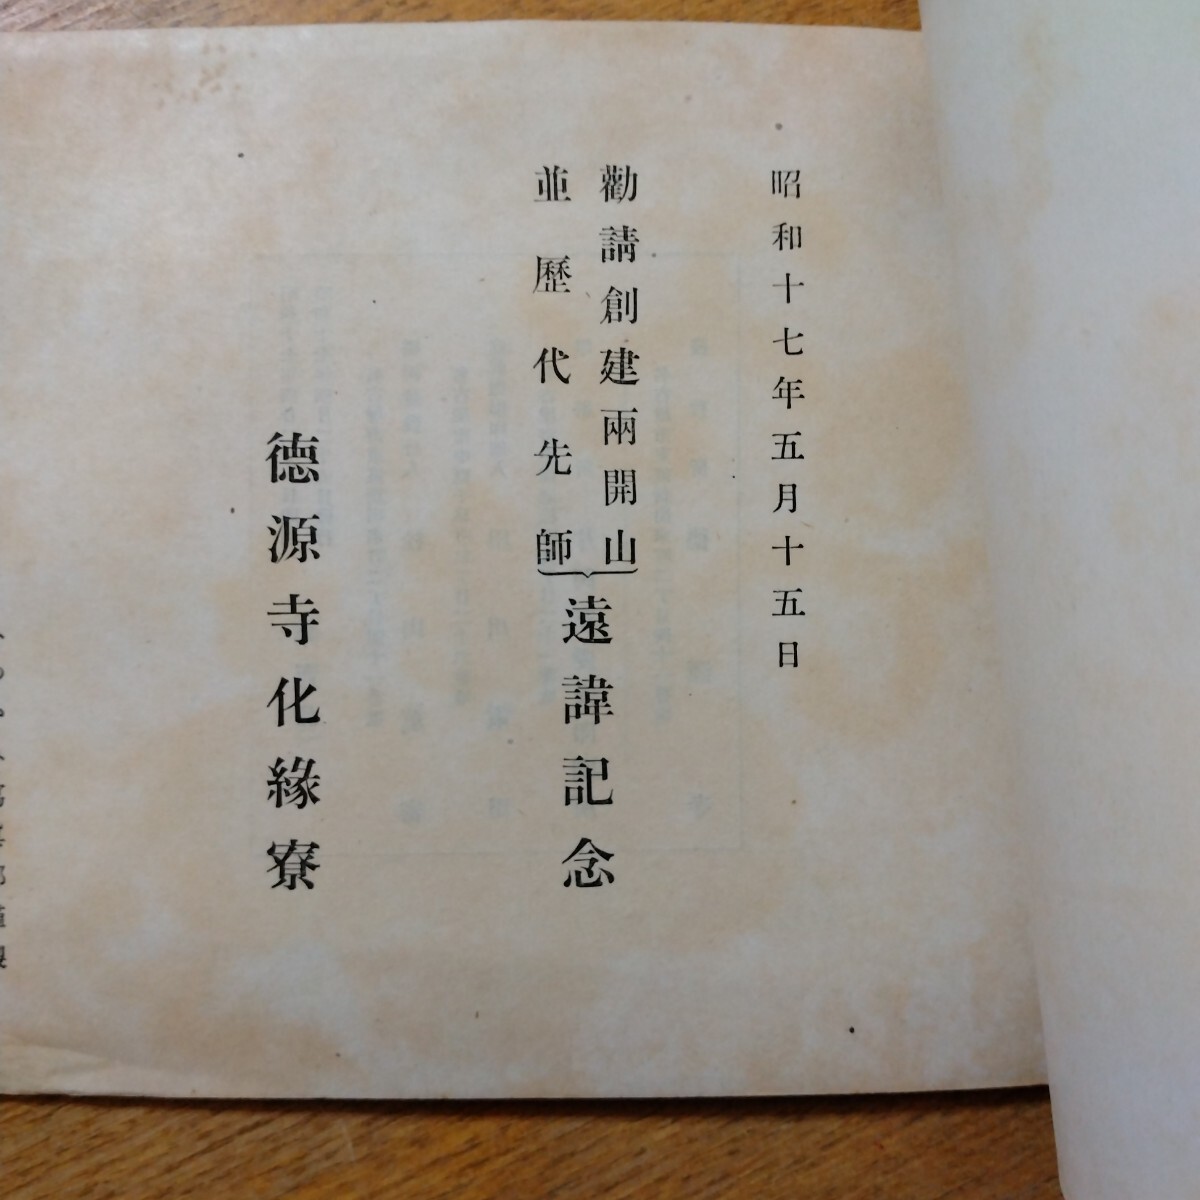 昭和十七年五月十五日
勸請創建兩開山
並歷代先師
遠諱記念
德源寺化緣寮